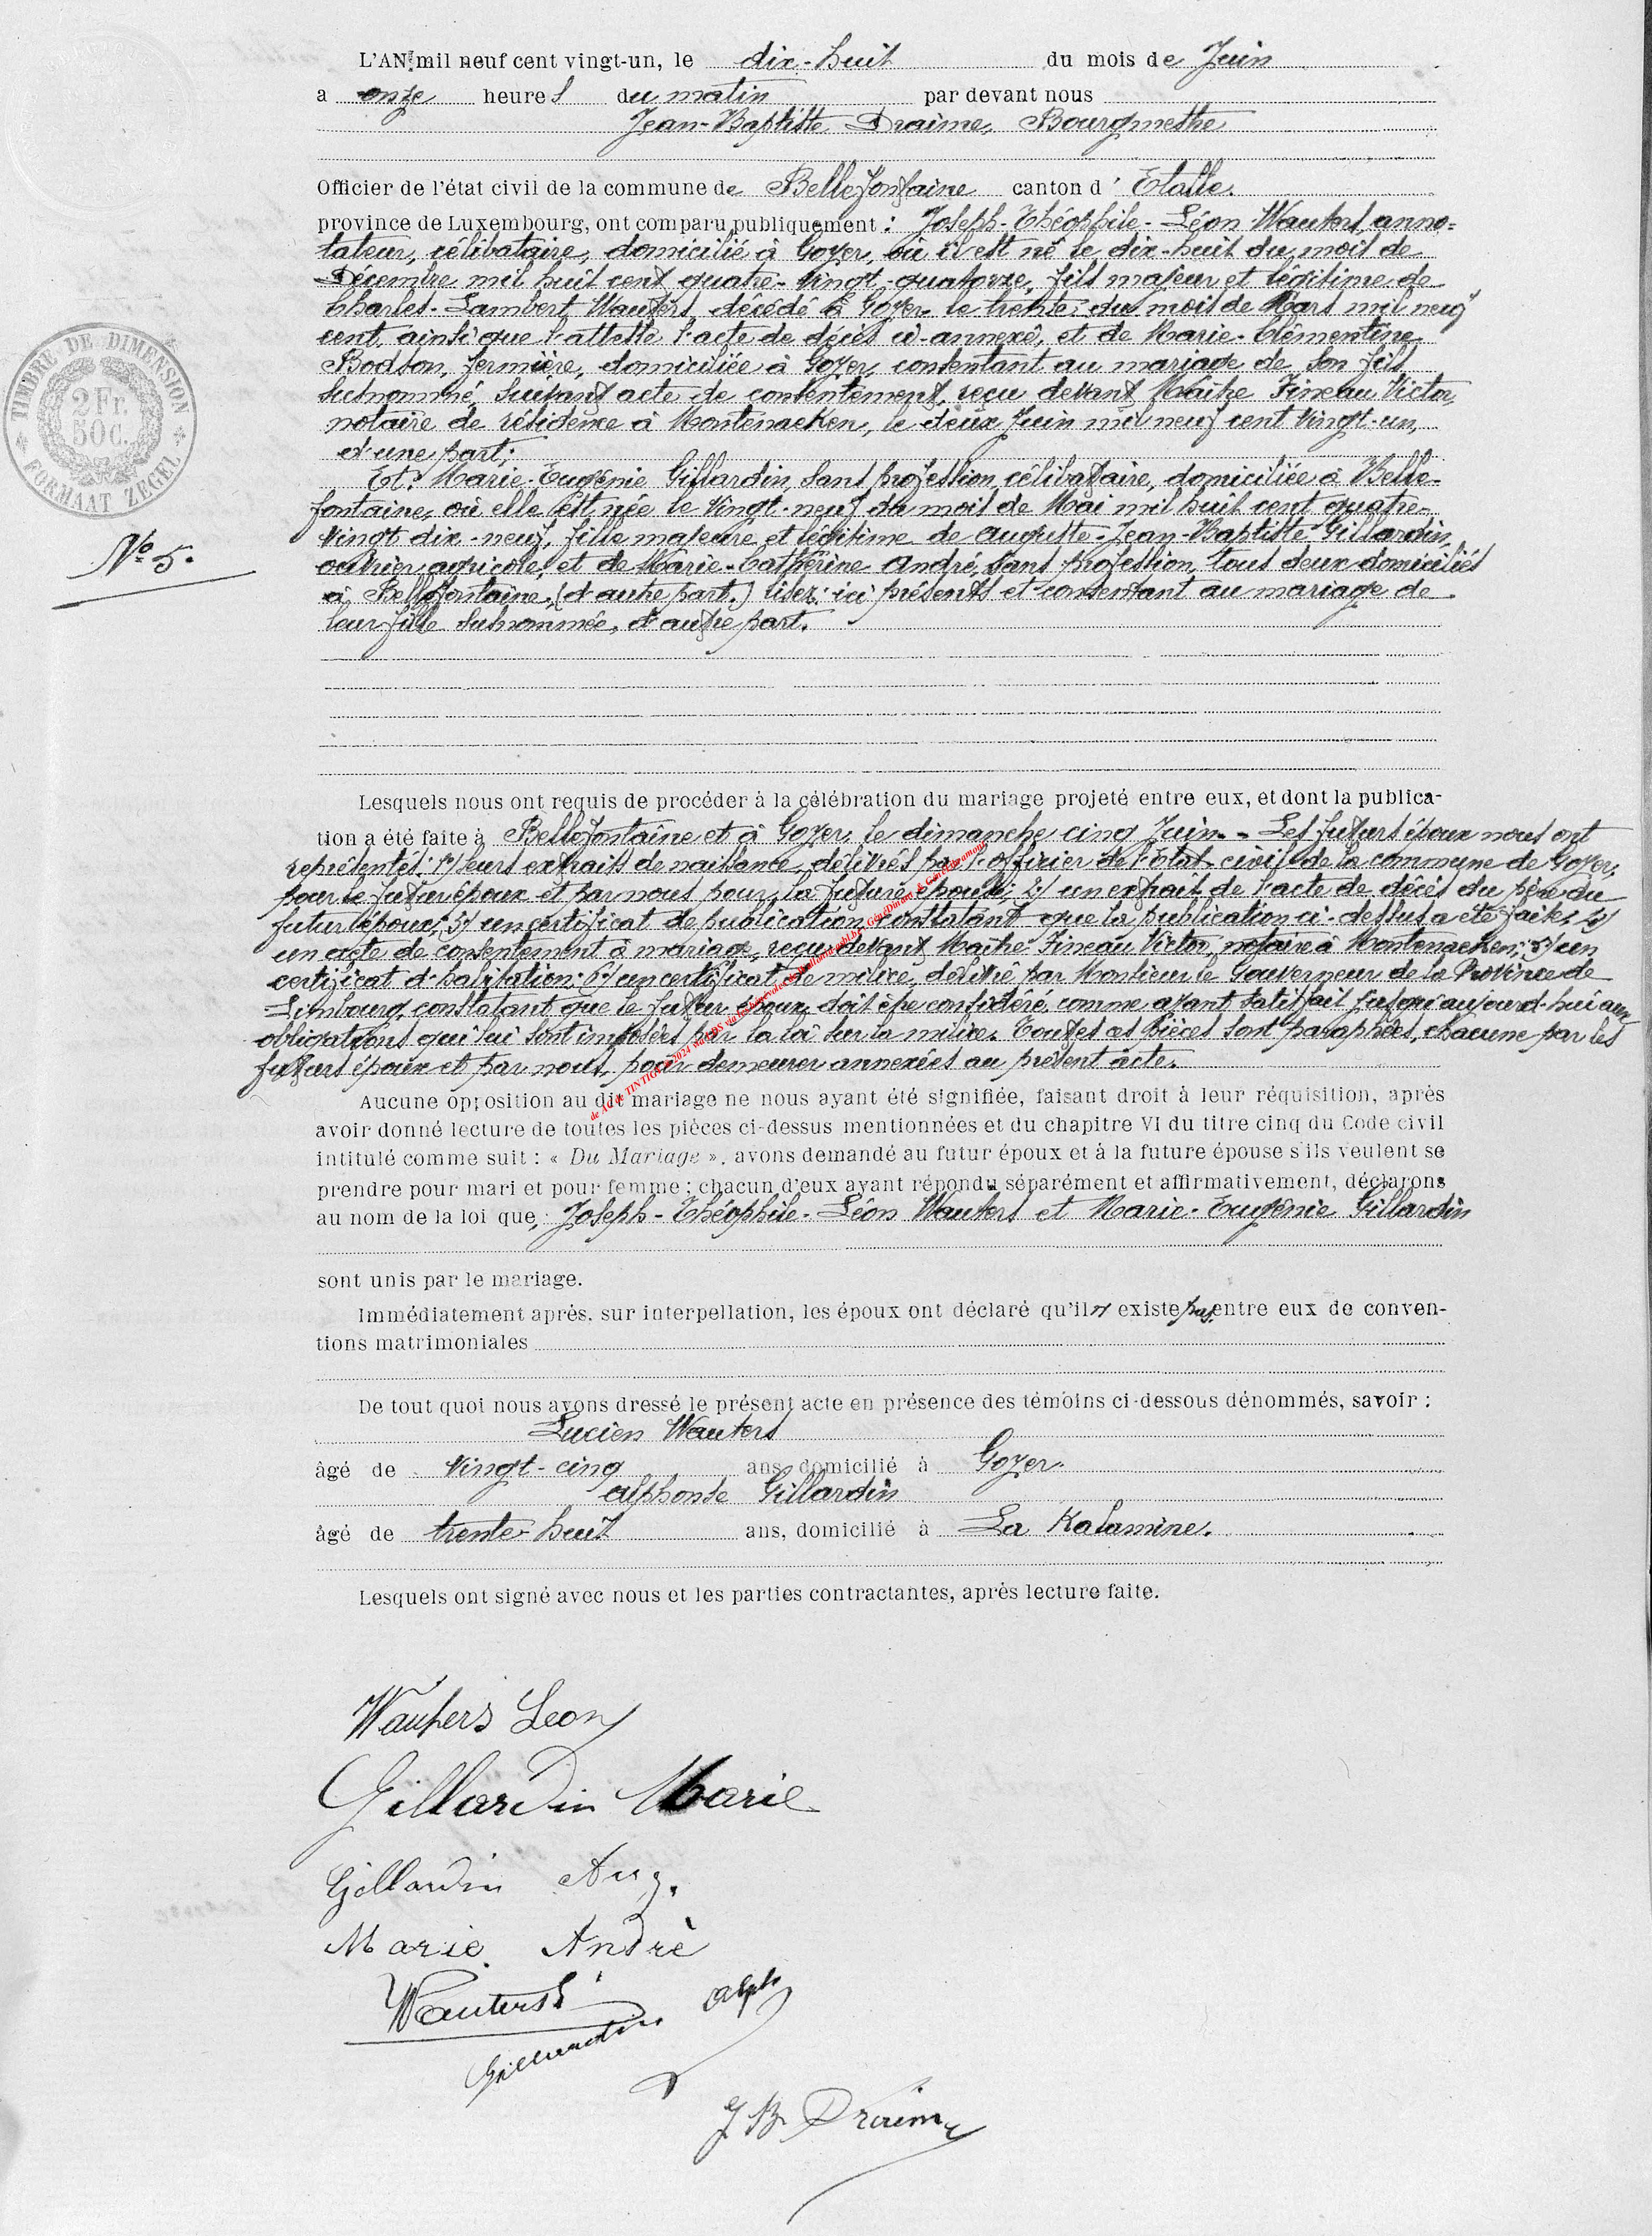 L'AN mil neuf cent vingt-un, le dix-huit du mois de Juin
a onze heures du matin par devant nous
Jean-Baptiste Draime, Bourgmestre
Officier de l'état civil de la commune de Bellefontaine canton d' Etalle.
province de Luxembourg, ont comparu publiquement : Joseph-Théophile-Léon Wauters, anno=
tateur, célibataire, domicilié à Goyer, où il est né le dix-huit du mois de
Décembre mil huit cent quatre-vingt-quatorze, fils majeur et légitime de
Charles-Lambert Wauters, décédé à Goyer le trente du mois de Mars mil neuf
cent, ainsi que l'atteste l'acte de décès ci-annexé, et de Marie-Clémentine
Bodson, fermière, domiciliée à Goyer, consentant au mariage de son fils
susnommé, suivant acte de consentement, reçu devant Maître Fineau Victor,
notaire de résidence à Montenaeken, le deux Juin mil neuf cent vingt-un,
d'une part;
TIMBRE DE DIMENSION
2 Fr.
50 C.
FORMAAT ZEGEL
Et: Marie-Eugénie Gillardin, sans profession, célibataire, domiciliée à Belle-
fontaine, où elle est née le vingt-neuf du mois de Mai mil huit cent quatre-
vingt dix-neuf, fille majeure et légitime de Auguste-Jean-Baptiste Gillardin,
N° 5.
ouvrier agricole, et de Marie-Catherine André, sans profession, tous deux domiciliés
à Bellefontaine, (d'autre part.) lisez: ici présents et consentant au mariage de
leur fille susnommée, d'autre part.
Lesquels nous ont requis de procéder à la célébration du mariage projeté entre eux, et dont la publica-
tion a été faite à Bellefontaine et à Goyer, le dimanche cinq Juin. - Les futurs époux nous ont
représentés: 1°) leurs extraits de naissance, délivrés par l'officier de l'état civil de la commune de Goyer,
pour le futur époux et par nous pour la future épouse; 2°) un extrait de l'acte de décès du père du
futur époux; 3°) un certificat de publication, constatant que la publication ci-dessus a été faite; 4°)
un acte de consentement à mariage, reçu devant Maître Fineau Victor, notaire à Montenaeken; 5°) un
certificat d'habitation; 6°) un certificat de milice, délivré par Monsieur le Gouverneur de la Province de
Limbourg, constatant que le futur époux doit être considéré comme ayant satisfait jusqu'aujourd'hui aux
obligations qui lui sont imposées par la loi sur la milice. Toutes ces pièces sont paraphées, chacune par les
futurs époux et par nous, pour demeurer annexées au présent acte.
Aucune opposition au dit mariage ne nous ayant été signifiée, faisant droit à leur réquisition, après
avoir donné lecture de toutes les pièces ci-dessus mentionnées et du chapitre VI du titre cinq du Code civil
intitulé comme suit : « Du Mariage », avons demandé au futur époux et à la future épouse s'ils veulent se
prendre pour mari et pour femme ; chacun d'eux ayant répondu séparément et affirmativement, déclarons
au nom de la loi que, Joseph-Théophile-Léon Wauters et Marie-Eugénie Gillardin
sont unis par le mariage.
Immédiatement après, sur interpellation, les époux ont déclaré qu'il n'existe pas entre eux de conven-
tions matrimoniales
De tout quoi nous avons dressé le présent acte en présence des témoins ci-dessous dénommés, savoir :
Lucien Wauters
âgé de vingt-cinq ans, domicilié à Goyer.
Alphonse Gillardin
âgé de trente-huit ans, domicilié à La Kalamine.
Lesquels ont signé avec nous et les parties contractantes, après lecture faite.
Wauters Leon
Gillardin Marie
Gillardin Aug.
Marie André
Wauters L
Gillardin Alph
J B Draime